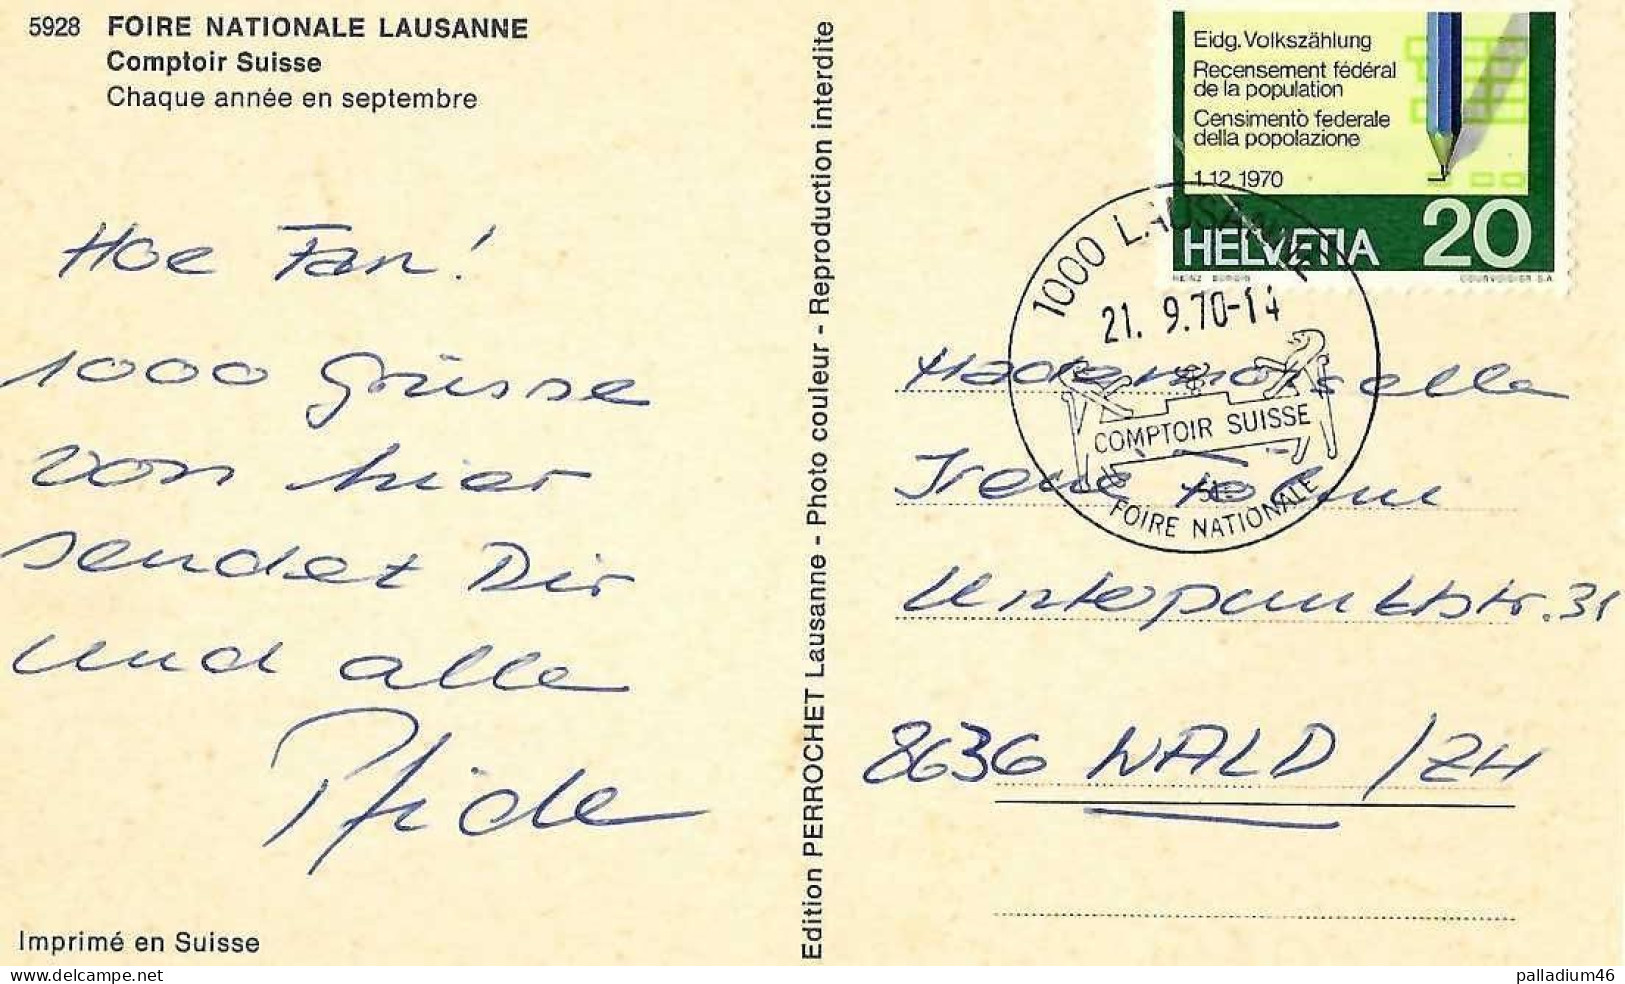 5928 FOIRE NATIONALE LAUSANNE
Comptoir Suisse
Chaque année en septembre
Hoe Fan!
1000 Grüsse
von hier
sendet Dir
und alle
Imprimé en Suisse
Edition PERROCHET Lausanne - Photo couleur - Reproduction interdite
Eidg. Volkszählung
Recensement fédéral
de la population
Censimento federale
della popolazione
1.12.1970
HELVETIA 20
COURVOISIER S.A.
1000 LAUSANNE
21. 9.70-14
COMPTOIR SUISSE
FOIRE NATIONALE
Mademoiselle
Irene
31
8636 WALD /ZH
palladium46